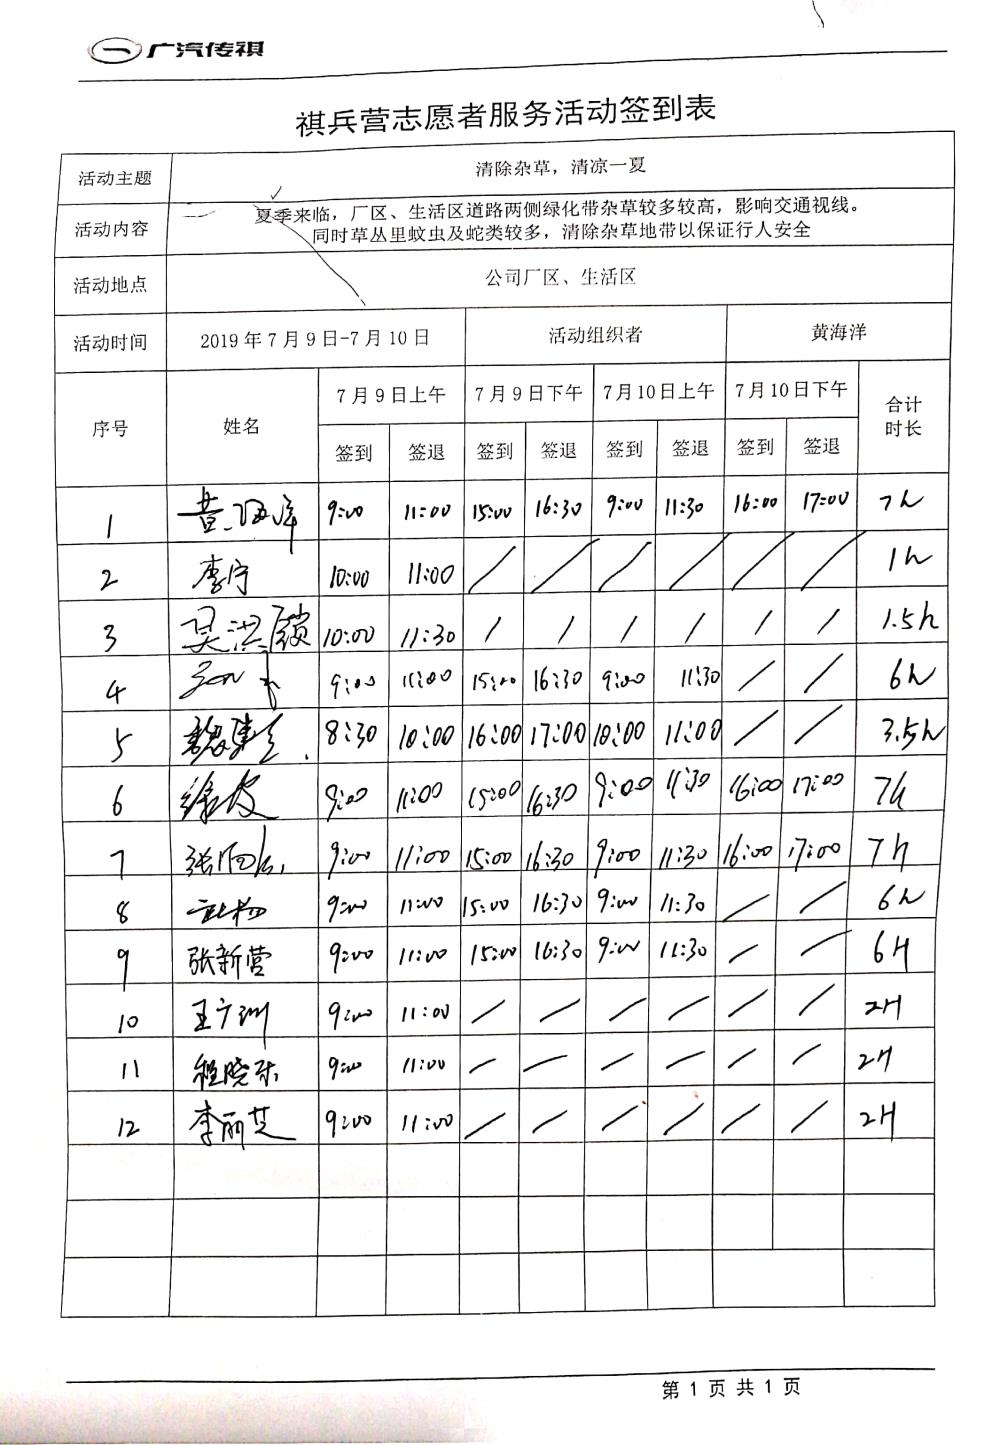 广汽传祺
祺兵营志愿者服务活动签到表
活动主题 清除杂草，清凉一夏
活动内容 夏季来临，厂区、生活区道路两侧绿化带杂草较多较高，影响交通视线。
同时草丛里蚊虫及蛇类较多，清除杂草地带以保证行人安全
活动地点 公司厂区、生活区
活动时间 2019年7月9日-7月10日 活动组织者 黄海洋
序号 姓名 7月9日上午 7月9日下午 7月10日上午 7月10日下午 合计时长
签到 签退 签到 签退 签到 签退 签到 签退
1 黄海洋 9:00 11:00 15:00 16:30 9:00 11:30 16:00 17:00 7h
2 李宁 10:00 11:00 / / / / / / 1h
3 10:00 11:30 / / / / / / 1.5h
4 9:00 11:00 15:00 16:30 9:00 11:30 / / 6h
5 8:30 10:00 16:00 17:00 10:00 11:00 / / 3.5h
6 徐波 9:00 11:00 15:00 16:30 9:00 11:30 16:00 17:00 7h
7 9:00 11:00 15:00 16:30 9:00 11:30 16:00 17:00 7h
8 9:00 11:00 15:00 16:30 9:00 11:30 / / 6h
9 张新营 9:00 11:00 15:00 16:30 9:00 11:30 / / 6H
10 王广洲 9:00 11:00 / / / / / / 2H
11 程晓东 9:00 11:00 / / / / / / 2H
12 李丽芝 9:00 11:00 / / / / / / 2H
第 1 页 共 1 页